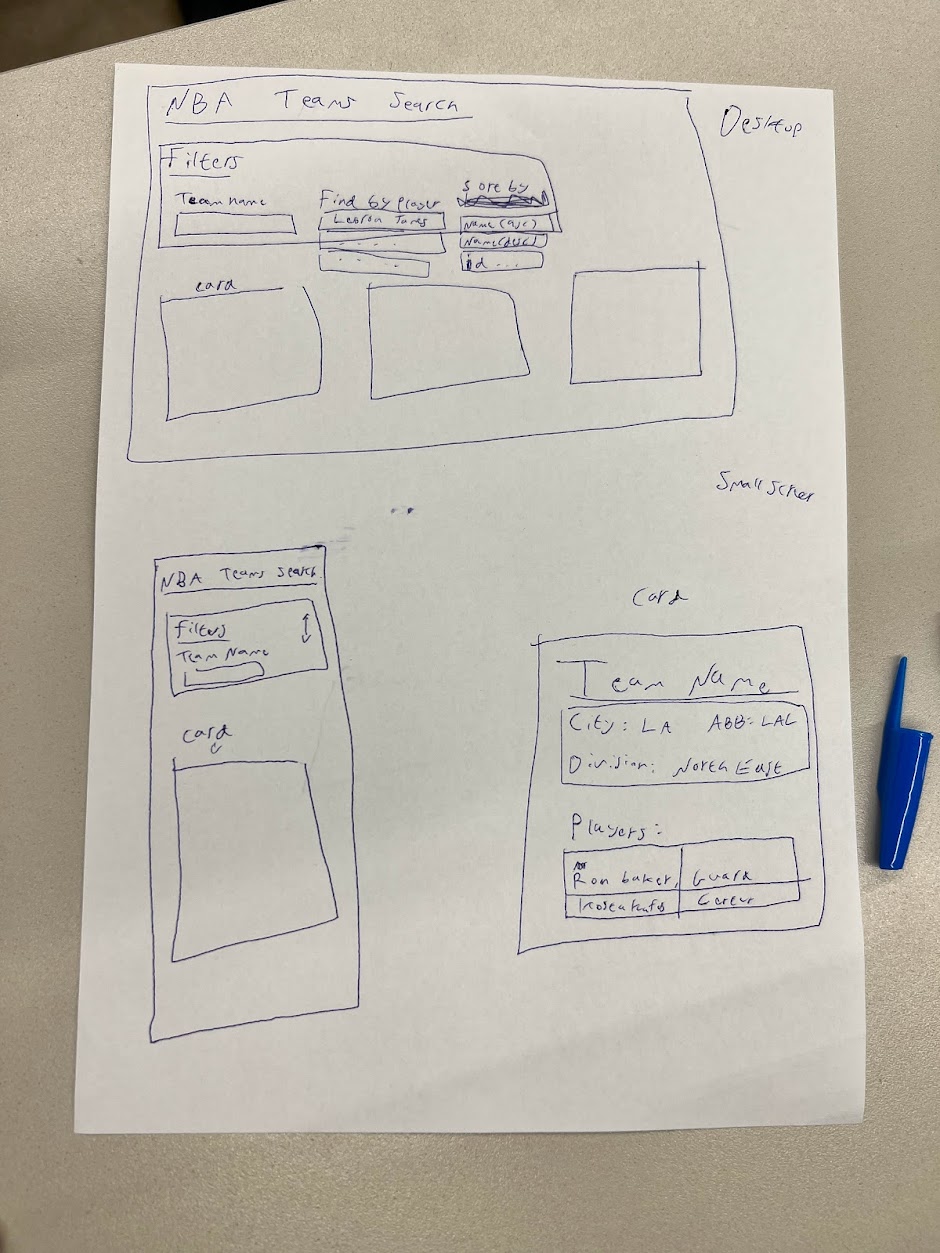 NBA Teams Search
Desktop
Filters
Team name
Find by player
Sore by
Lebron James
Name (asc)
Name(desc)
id ...
card
Small Screen
NBA Teams Search
Filters
Team Name
card
Card
Team Name
City: LA ABB: LAL
Division: North East
Players:
Ron baker, Guard